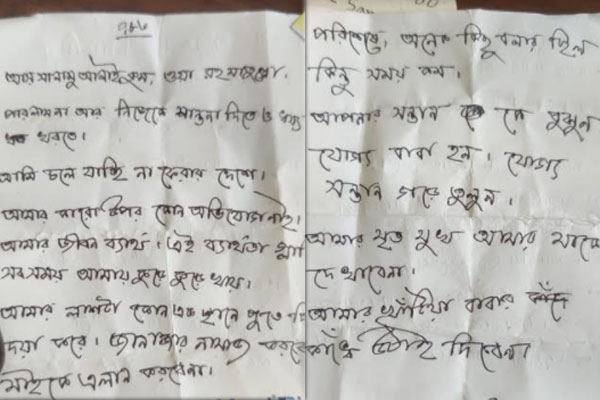 ৭৮৬
আসসালামু আলাইকুম, ওয়া রহমাতুল্লা।
পারলামনা আর নিজেকে সান্তনা দিতে ও ধৈর্য্য
ধরতে।
আমি চলে যাচ্ছি না ফেরার দেশে।
আমার কারো উপর কোন অভিযোগ নাই।
আমার জীবন ব্যার্থ। এই ব্যার্থতা গ্লানি
সব সময় আমায় কুড়ে কুড়ে খায়।
আমার লাশটা কোন এক স্থানে পুতে দি
দয়া করে। জানাজার নামাজ করবে
মাইকে এলান করবেনা।
পরিশেষে, অনেক কিছু বলার ছিল
কিন্তু সময় কম।
আপনার সন্তান কে বুঝুন
যোগ্য বাবা হন। যোগ্য
সন্তান গড়ে তুলুন।
আমার মৃত মুখ আমার মাকে
দেখাবেনা।
আমার খাটিয়া বাবার
কাঁধে উঠাই দিবেনা।